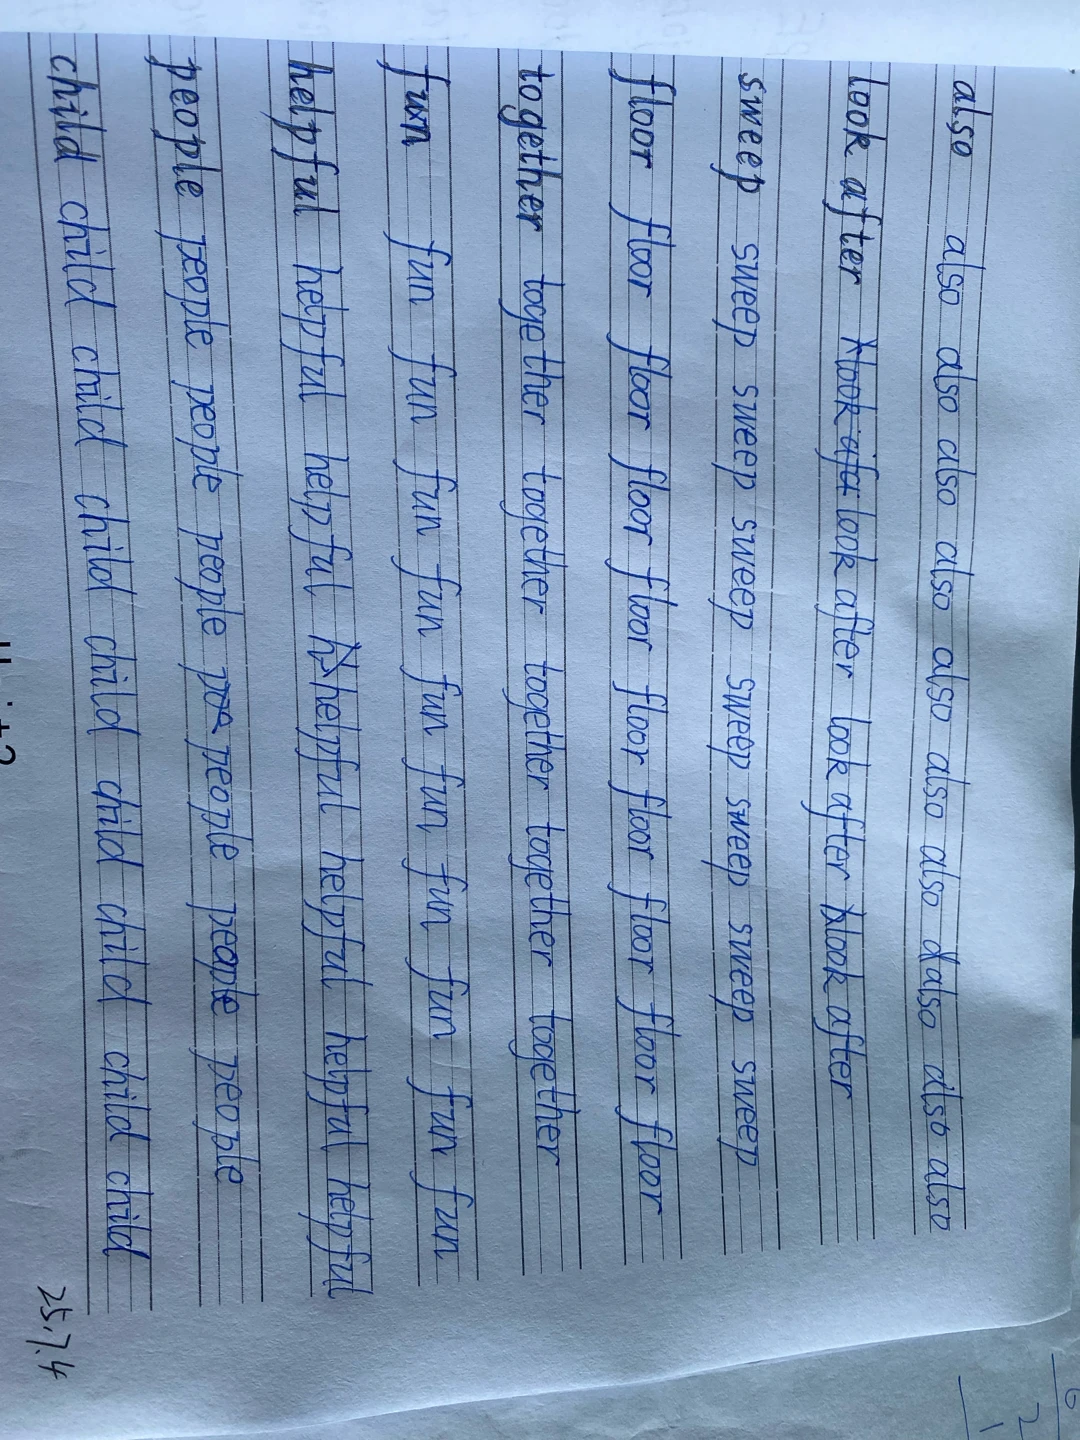 also also also also also also also also also dalso also also
look after look aft look after look after look after
sweep sweep sweep sweep sweep sweep sweep sweep
floor floor floor floor floor floor floor floor floor floor
together together together together together together
fun fun fun fun fun fun fun fun fun fun
helpful helpful helpful h helpful helpful helpful helpful
people people people people peo people people people
child child child child child child child child child
25.7.4